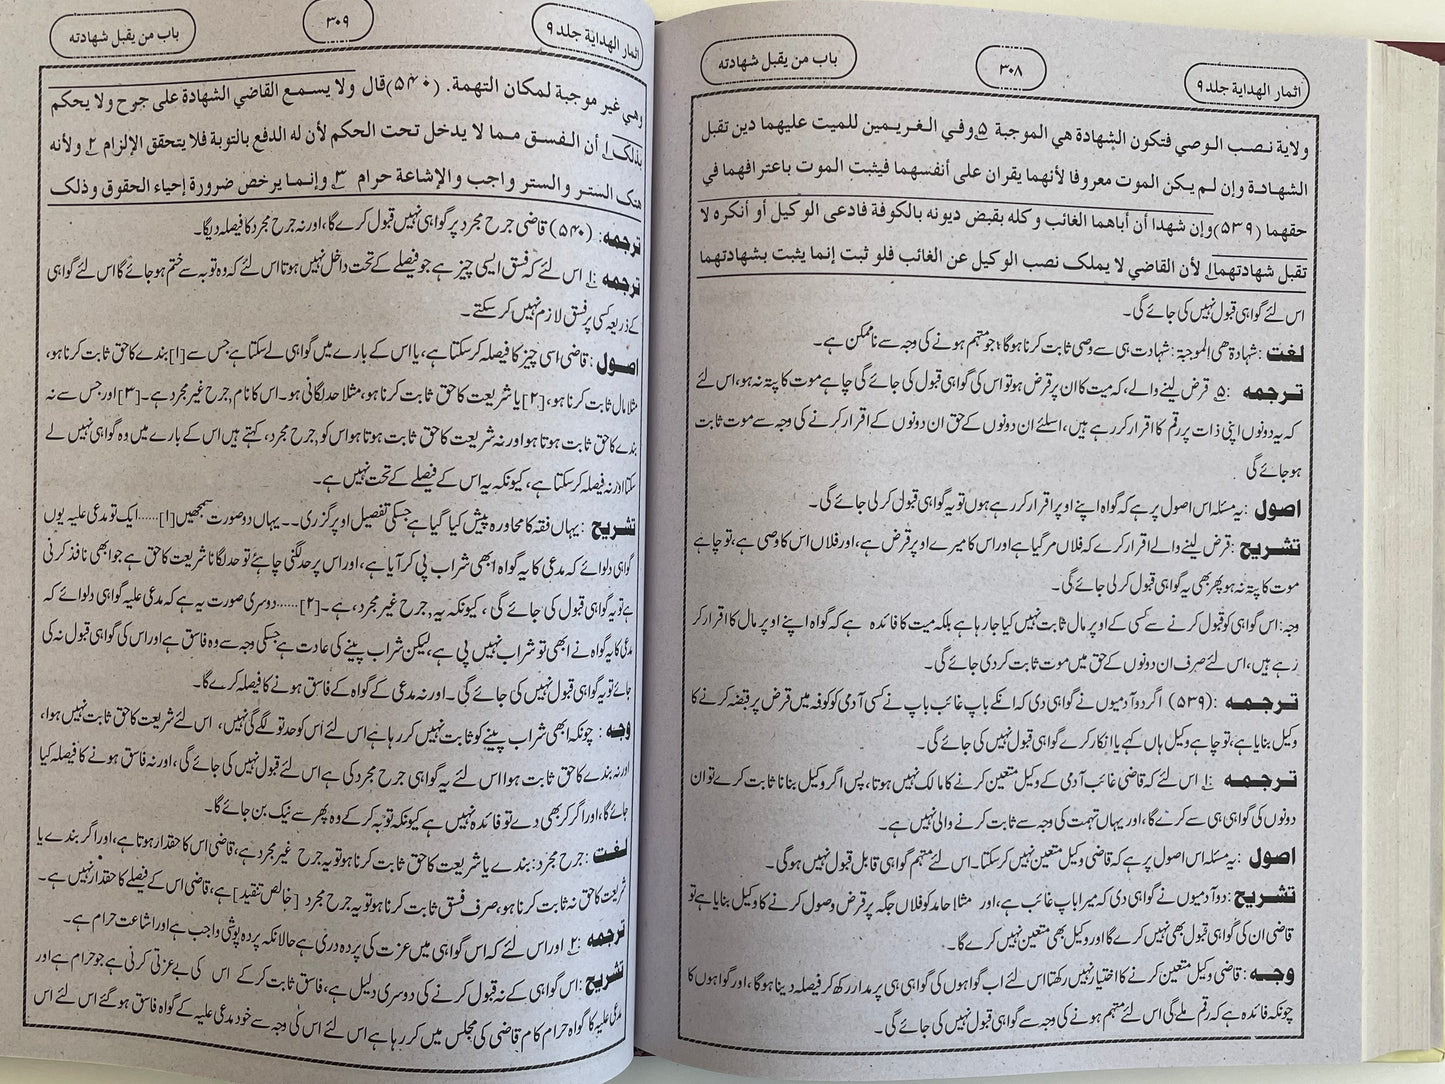 اثمار الهداية جلد ۹
۳۰۸
باب من يقبل شهادته
ولاية نصب الوصي فتكون الشهادة هي الموجبة ۵ وفي الغريمين للميت عليهما دين تقبل
الشهادة وإن لم يكن الموت معروفا لأنهما يقران على أنفسهما فيثبت الموت باعترافهما في
حقهما (۵۳۹) وإن شهدا أن أباهما الغائب وكله بقبض ديونه بالكوفة فادعى الوكيل أو أنكره لا
تقبل شهادتهما ۱ لأن القاضي لا يملك نصب الوكيل عن الغائب فلو ثبت إنما يثبت بشهادتهما
اس لئے گواہی قبول نہیں کی جائے گی۔
لغت : شهادة هي الموجبة : شہادت ہی سے وصی ثابت کرنا ہوگا؛ جو متہم ہونے کی وجہ سے ناممکن ہے۔
ترجمه : ۵ قرض لینے والے، کہ میت کا ان پر قرض ہو تو اس کی گواہی قبول کی جائے گی چاہے موت کا پتہ نہ ہو، اس لئے
کہ یہ دونوں اپنی ذات پر رقم کا اقرار کر رہے ہیں، اسلئے ان دونوں کے حق ان دونوں کے اقرار کرنے کی وجہ سے موت ثابت
ہو جائے گی
اصول : یہ مسئلہ اس اصول پر ہے کہ گواہ اپنے اوپر اقرار کر رہے ہوں تو یہ گواہی قبول کر لی جائے گی۔
تشریح : قرض لینے والے اقرار کرے کہ فلاں مر گیا ہے اور اس کا میرے اوپر قرض ہے، اور فلاں اس کا وصی ہے، تو چاہے
موت کا پتہ نہ ہو پھر بھی یہ گواہی قبول کر لی جائے گی۔
وجہ: اس گواہی کو قبول کرنے سے کسی کے اوپر مال ثابت نہیں کیا جا رہا ہے بلکہ میت کا فائدہ ہے کہ گواہ اپنے اوپر مال کا اقرار کر
رہے ہیں، اس لئے صرف ان دونوں کے حق میں موت ثابت کر دی جائے گی۔
ترجمه : (۵۳۹) اگر دو آدمیوں نے گواہی دی کہ انکے باپ غائب باپ نے کسی آدمی کو کوفہ میں قرض پر قبضہ کرنے کا
وکیل بنایا ہے، تو چاہے وکیل ہاں کہے یا انکار کرے گواہی قبول نہیں کی جائے گی۔
ترجمه : ۱ اس لئے کہ قاضی غائب آدمی کے وکیل متعین کرنے کا مالک نہیں ہوتا، پس اگر وکیل بنانا ثابت کرے تو ان
دونوں کی گواہی ہی سے کرے گا، اور یہاں تہمت کی وجہ سے ثابت کرنے والی نہیں ہے۔
اصول : یہ مسئلہ اس اصول پر ہے کہ قاضی وکیل متعین نہیں کر سکتا۔ اس لئے متہم گواہی قابل قبول نہیں ہوگی۔
تشریح : دو آدمیوں نے گواہی دی کہ میرا باپ غائب ہے، اور مثلا حامد کو فلاں جگہ پر قرض وصول کرنے کا وکیل بنایا ہے تو
قاضی ان کی گواہی قبول بھی نہیں کرے گا اور وکیل بھی متعین نہیں کرے گا۔
وجه : قاضی وکیل متعین کرنے کا اختیار نہیں رکھتا اس لئے اب گواہوں کی گواہی ہی پر مدار رکھ کر فیصلہ دینا ہوگا، اور گواہوں کا
چونکہ فائدہ ہے کہ رقم ملے گی اس لئے متہم ہونے کی وجہ سے گواہی قبول نہیں کی جائے گی۔
اثمار الهداية جلد ۹
۳۰۹
باب من يقبل شهادته
وهي غير موجبة لمكان التهمة. (۵۴۰) قال ولا يسمع القاضي الشهادة على جرح ولا يحكم
بذلك ۱ أن الفسق مما لا يدخل تحت الحكم لأن له الدفع بالتوبة فلا يتحقق الإلزام ۲ ولأنه
هتك الستر والستر واجب والإشاعة حرام ۳ وإنما يرخص ضرورة إحياء الحقوق وذلك
ترجمه : (۵۴۰) قاضی جرح مجرد پر گواہی نہیں قبول کرے گا، اور نہ جرح مجرد کا فیصلہ دیگا۔
ترجمه : ۱ اس لئے کہ فسق ایسی چیز ہے جو فیصلے کے تحت داخل نہیں ہوتا اس لئے کہ وہ توبہ سے ختم ہو جائے گا اس لئے گواہی
کے ذریعہ کسی پر فسق لازم نہیں کر سکتے۔
اصول : قاضی اسی چیز کا فیصلہ کر سکتا ہے، یا اس کے بارے میں گواہی لے سکتا ہے جس سے [۱] بندے کا حق ثابت کرنا ہو،
مثلا مال ثابت کرنا ہو، [۲] یا شریعت کا حق ثابت کرنا ہو، مثلا حد لگانی ہو۔ اس کا نام، جرح غیر مجرد ہے۔ [۳] اور جس سے نہ
بندے کا حق ثابت ہوتا ہو اور نہ شریعت کا حق ثابت ہوتا ہو اس کو، جرح مجرد، کہتے ہیں اس کے بارے میں وہ گواہی نہیں لے
سکتا اور نہ فیصلہ کر سکتا ہے، کیونکہ یہ اس کے فیصلے کے تحت نہیں ہے۔
تشریح : یہاں فقہ کا محاورہ پیش کیا گیا ہے جسکی تفصیل اوپر گزری۔۔ یہاں دو صورت سمجھیں [۱]..... ایک تو مدعی علیہ یوں
گواہی دلوائے کہ مدعی کا یہ گواہ ابھی شراب پی کر آیا ہے، اور اس پر حد لگنی چاہئے تو حد لگانا شریعت کا حق ہے جو ابھی نافذ کرنی
ہے تو یہ گواہی قبول کی جائے گی، کیونکہ یہ، جرح غیر مجرد، ہے۔ [۲]..... دوسری صورت یہ ہے کہ مدعی علیہ گواہی دلوائے کہ
مدعی کا یہ گواہ نے ابھی تو شراب نہیں پی ہے، لیکن شراب پینے کی عادت ہے جسکی وجہ سے وہ فاسق ہے اور اس کی گواہی قبول نہ کی
جائے تو یہ گواہی قبول نہیں کی جائے گی۔ اور نہ مدعی کے گواہ کے فاسق ہونے کا فیصلہ کرے گا۔
وجه : چونکہ ابھی شراب پینے کو ثابت نہیں کر رہا ہے اس لئے اس کو حد تو لگے گی نہیں، اس لئے شریعت کا حق ثابت نہیں ہوا،
اور نہ بندے کا حق ثابت ہوا اس لئے یہ گواہی جرح مجرد کی ہے اس لئے قبول نہیں کی جائے گی، اور نہ فاسق ہونے کا فیصلہ کیا
جائے گا، اور اگر کر بھی دے تو فائدہ نہیں ہے کیونکہ توبہ کر کے وہ پھر سے نیک بن جائے گا۔
لغت : جرح مجرد: بندے یا شریعت کا حق ثابت کرنا ہو تو یہ جرح غیر مجرد ہے، قاضی اس کا حقدار ہوتا ہے، اور اگر بندے یا
شریعت کا حق نہ ثابت کرنا ہو، صرف فسق ثابت کرنا ہو تو یہ جرح مجرد [خالص تنقید] ہے، قاضی اس کے فیصلے کا حقدار نہیں ہے۔
ترجمه : ۲ اور اس لئے کہ اس گواہی میں عزت کی پردہ دری ہے حالانکہ پردہ پوشی واجب ہے اور اشاعت حرام ہے۔
تشریح : اس گواہی کے نہ قبول کرنے کی دوسری دلیل ہے، فاسق ثابت کر کے اس کی بے عزتی کرنی ہے جو حرام ہے اور
مدعی علیہ کا گواہ حرام کام قاضی کی مجلس میں کر رہا ہے اس لئے اس کی وجہ سے خود مدعی علیہ کے گواہ فاسق ہو گئے اس لئے اس